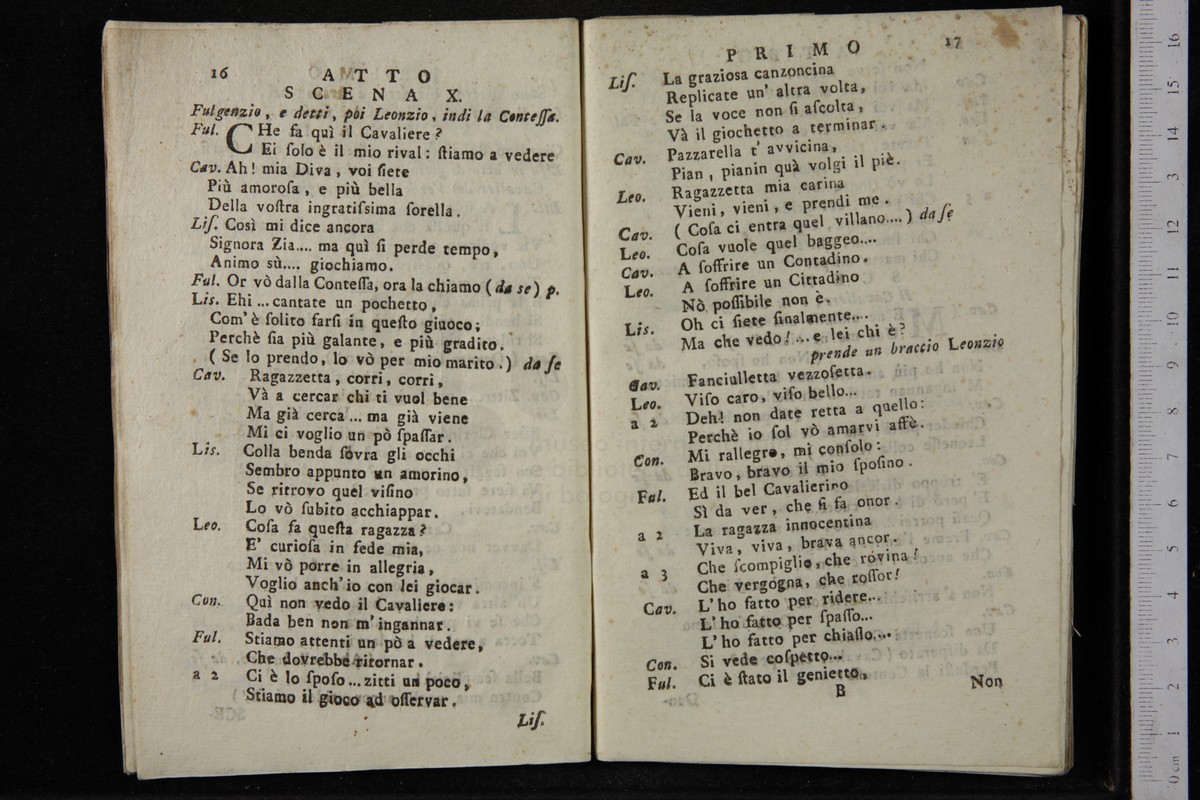 16 ATTO
SCENA X.
Fulgenzio, e detti, poi Leonzio, indi la Conteſſa.
Ful. CHe fa quì il Cavaliere?
Ei ſolo è il mio rival: ſtiamo a vedere
Cav. Ah! mia Diva, voi ſiete
Più amoroſa, e più bella
Della voſtra ingratiſsima ſorella.
Liſ. Così mi dice ancora
Signora Zia.... ma quì ſi perde tempo,
Animo sù.... giochiamo.
Ful. Or vò dalla Conteſſa, ora la chiamo (da se) p.
Lis. Ehi ... cantate un pochetto,
Com' è ſolito farſi in queſto giuoco;
Perchè ſia più galante, e più gradito.
(Se lo prendo, lo vò per mio marito.) da ſe
Cav. Ragazzetta, corri, corri,
Và a cercar chi ti vuol bene
Ma già cerca ... ma già viene
Mi ci voglio un pò ſpaſſar.
Lis. Colla benda ſovra gli occhi
Sembro appunto un amorino,
Se ritrovo quel viſino
Lo vò ſubito acchiappar.
Leo. Coſa fa queſta ragazza?
E' curioſa in fede mia,
Mi vò porre in allegria,
Voglio anch' io con lei giocar.
Con. Quì non vedo il Cavaliere:
Bada ben non m' ingannar.
Ful. Stiamo attenti un pò a vedere,
Che dovrebbe ritornar.
a 2 Ci è lo ſpoſo ... zitti un poco,
Stiamo il gioco ad oſſervar.
Liſ.
PRIMO 17
Liſ. La graziosa canzoncina
Replicate un' altra volta,
Se la voce non ſi aſcolta,
Và il giochetto a terminar.
Cav. Pazzarella t' avvicina,
Pian, pianin quà volgi il piè.
Leo. Ragazzetta mia carina
Vieni, vieni, e prendi me.
Cav. (Coſa ci entra quel villano....) da ſe
Leo. Coſa vuole quel baggeo....
Cav. A ſoffrire un Contadino.
Leo. A ſoffrire un Cittadino
Nò poſſibile non è.
Lis. Oh ci ſiete ſinalmente....
Ma che vedo! ... e lei chi è?
prende un braccio Leonzio
Cav. Fanciulletta vezzoſetta.
Leo. Viſo caro, viſo bello...
a 2 Deh! non date retta a quello:
Perchè io ſol vò amarvi affè.
Con. Mi rallegro, mi conſolo:
Bravo, bravo il mio ſpoſino.
Ful. Ed il bel Cavalierino
Sì da ver, che ſi fa onor.
a 2 La ragazza innocentina
Viva, viva, brava ancor.
a 3 Che ſcompiglio, che rovina!
Che vergogna, che roſſor!
Cav. L' ho fatto per ridere...
L' ho fatto per ſpaſſo...
L' ho fatto per chiaſſo....
Con. Si vede coſpetto...
Ful. Ci è ſtato il genietto,
B Non